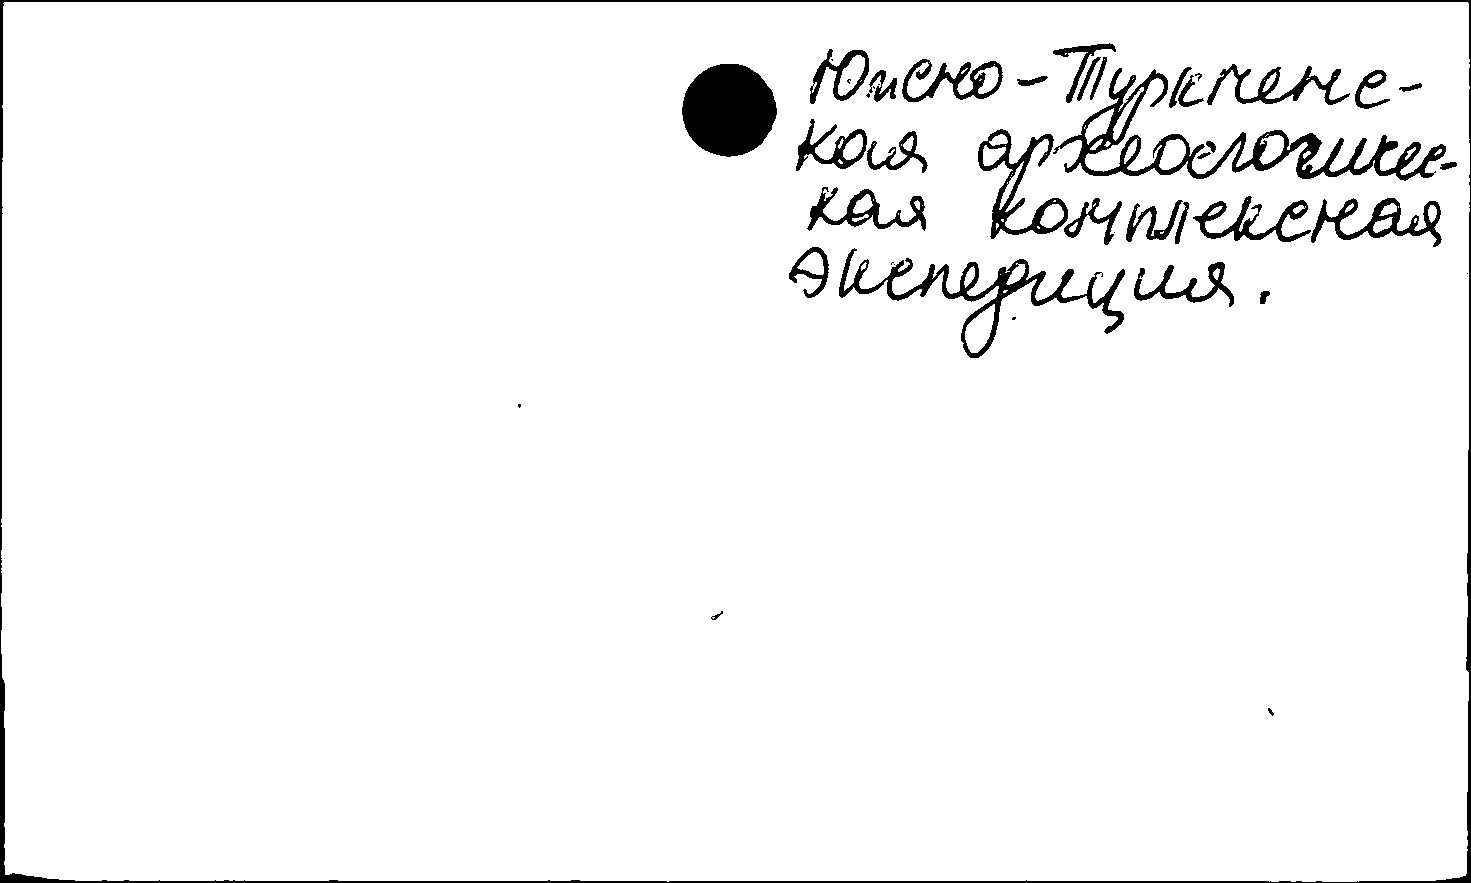 Южно-Туркменс-
кая археологичес-
кая комплексная
экспедиция.